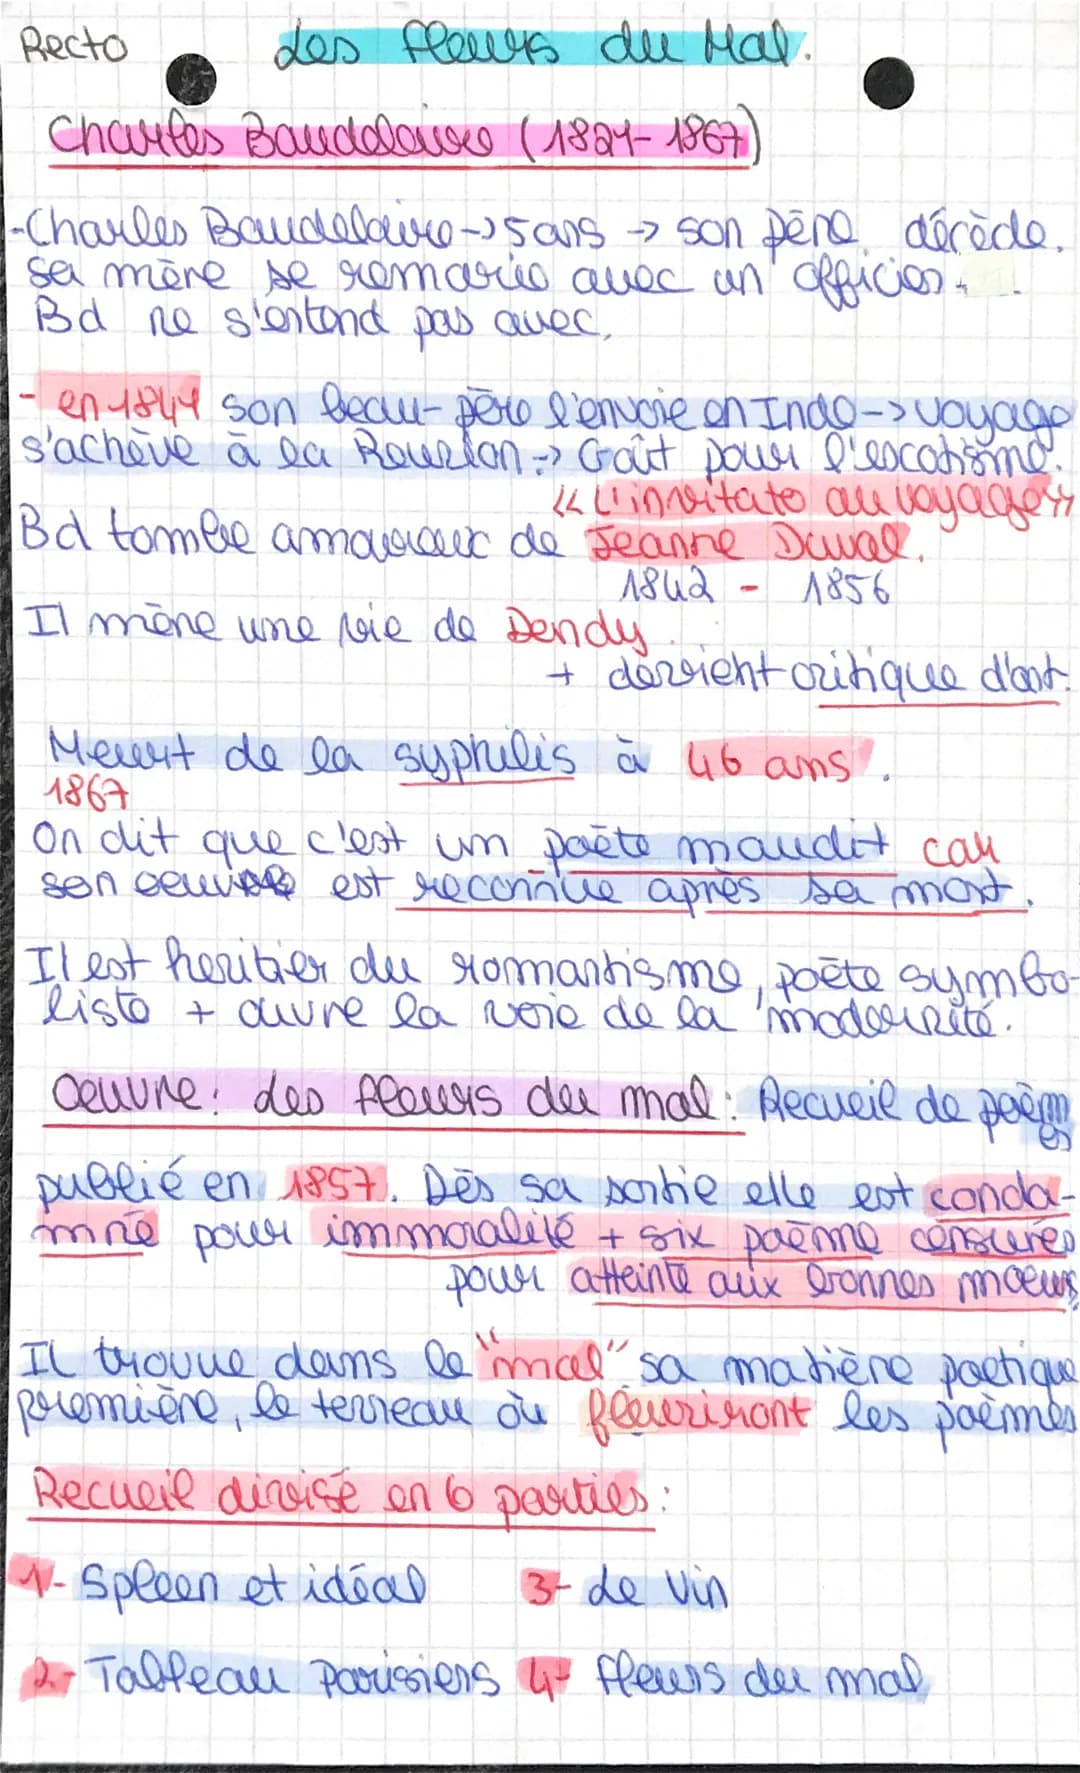 Recto
Les fleurs du Mal.
Charles Baudelaire (1821-1867)
-Charles Baudelaire -> 5 ans -> son père décède.
sa mère se remarie avec un officier.
Bd ne s'entend pas avec.
- en 1841 son beau-père l'envoie en Inde -> voyage
s'achève à la Reunion -> Goût pour l'exotisme.
<< L'invitato au voyage >>
Bd tombe amoureux de Jeanne Duval.
1842 - 1856
Il mène une vie de Dendy.
+ devient critique d'art.
Meurt de la syphilis à 46 ans.
1867
On dit que c'est un poète maudit car
son oeuvre est reconnue après sa mort.
Il est heritier du romantisme, poète symbo-
liste + ouvre la voie de la modernité.
Oeuvre: Les fleurs du mal: Recueil de poèm
es
publié en 1857. Dès sa sortie elle est conda-
mné pour immoralité + six poème censurés
pour atteinte aux bonnes moeurs
Il trouve dans le "mal" sa matière poetique
première, le terreau où fleuriront les poèmes
Recueil divisé en 6 parties:
1- Spleen et idéal 3- Le Vin
2- Tableau Parisiens 4- fleurs du mal